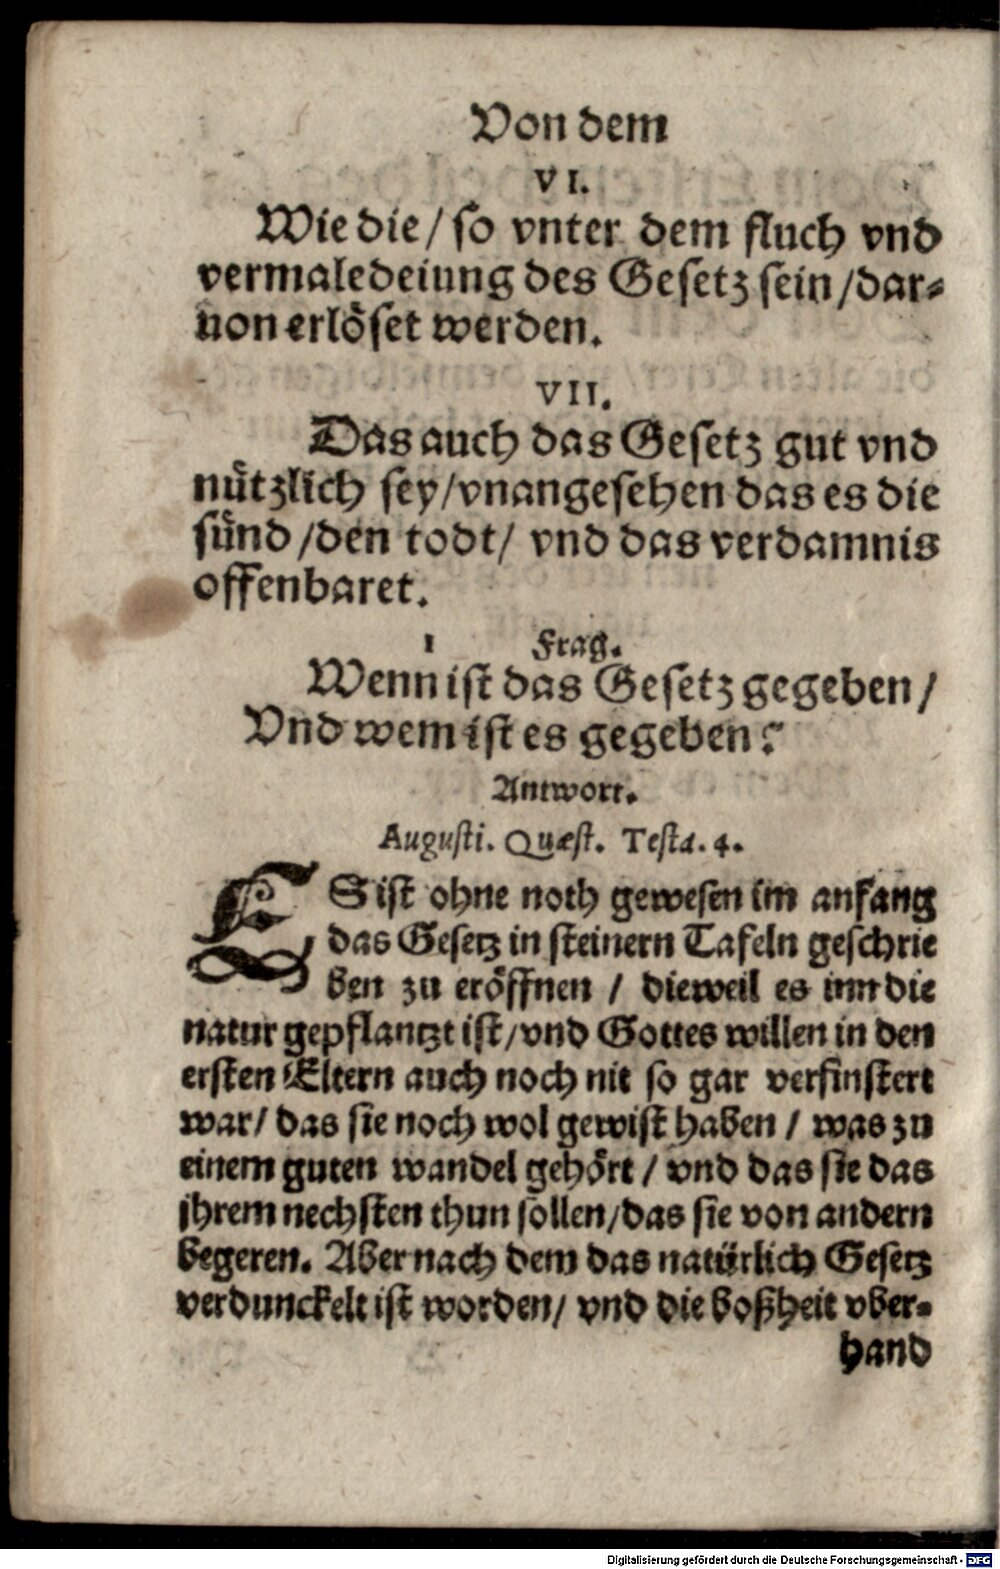 Von dem
VI.
Wie die / so vnter dem fluch vnd
vermaledeiung des Gesetz sein / dar-
uon erlöset werden.
VII.
Das auch das Gesetz gut vnd
nützlich sey / vnangesehen das es die
sünd / den todt / vnd das verdamnis
offenbaret.
1 Frag.
Wenn ist das Gesetz gegeben /
Vnd wem ist es gegeben?
Antwort.
Augusti. Quæst. Testa. 4.
ES ist ohne noth gewesen im anfang
das Gesetz in steinern Tafeln geschrie
ben zu eröffnen / dieweil es inn die
natur gepflantzt ist / vnd Gottes willen in den
ersten Eltern auch noch nit so gar verfinstert
war / das sie noch wol gewist haben / was zu
einem guten wandel gehört / vnd das sie das
jhrem nechsten thun sollen / das sie von andern
begeren. Aber nach dem das natürlich Gesetz
verdunckelt ist worden / vnd die boßheit vber-
hand
Digitalisierung gefördert durch die Deutsche Forschungsgemeinschaft - DFG